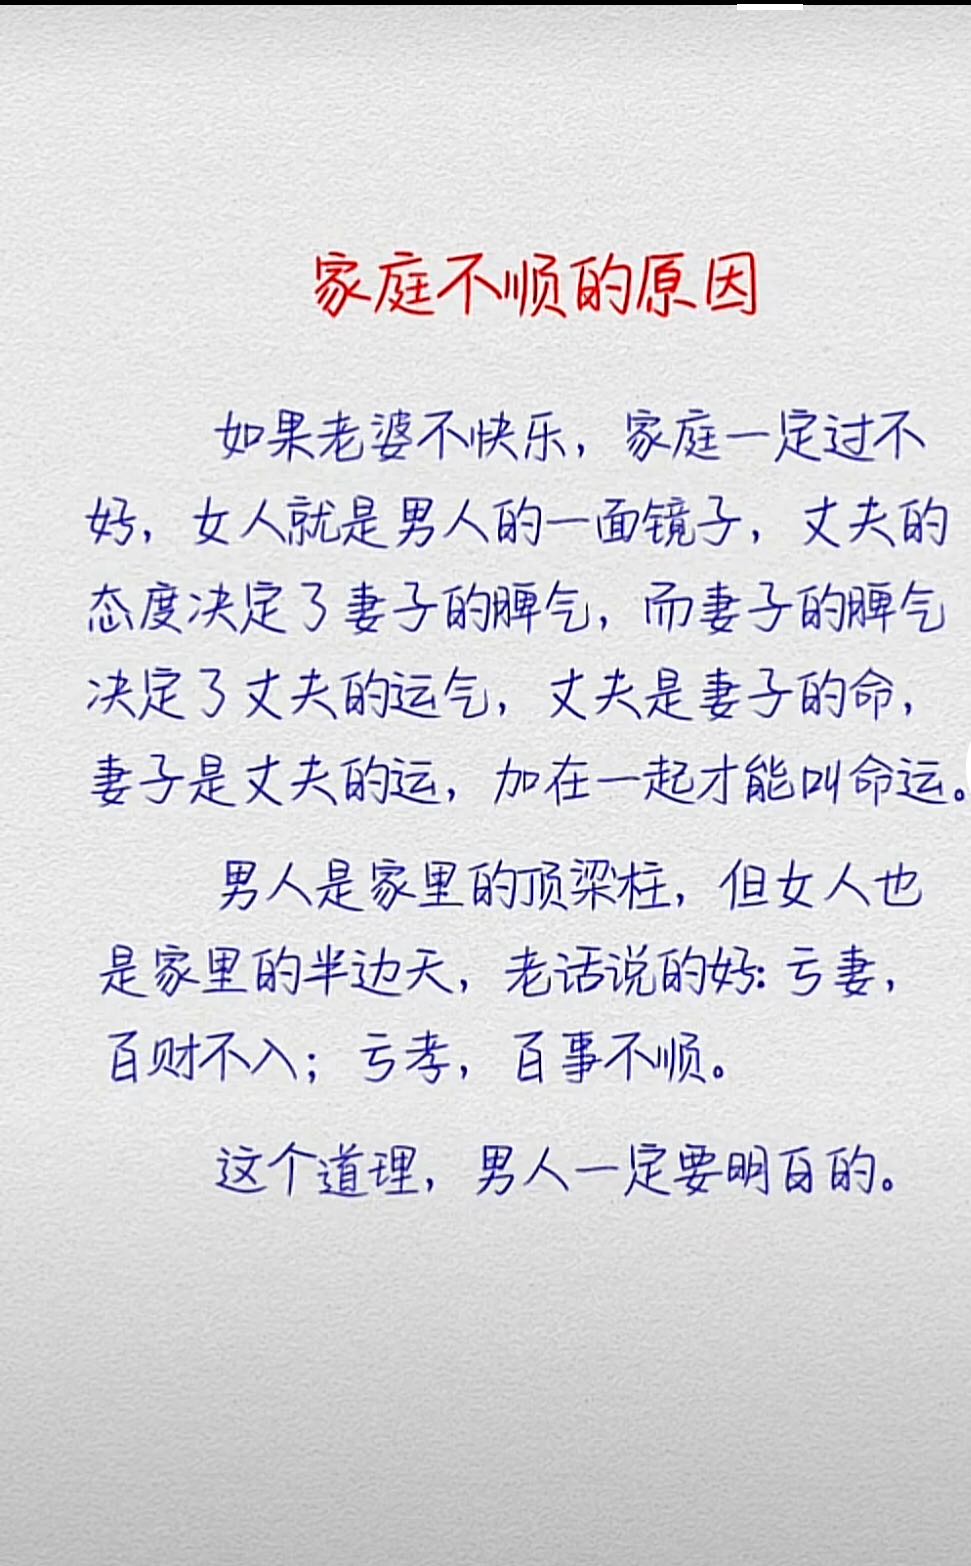 家庭不顺的原因
如果老婆不快乐，家庭一定过不
好，女人就是男人的一面镜子，丈夫的
态度决定了妻子的脾气，而妻子的脾气
决定了丈夫的运气，丈夫是妻子的命，
妻子是丈夫的运，加在一起才能叫命运。
男人是家里的顶梁柱，但女人也
是家里的半边天，老话说的好：亏妻，
百财不入；亏孝，百事不顺。
这个道理，男人一定要明白的。